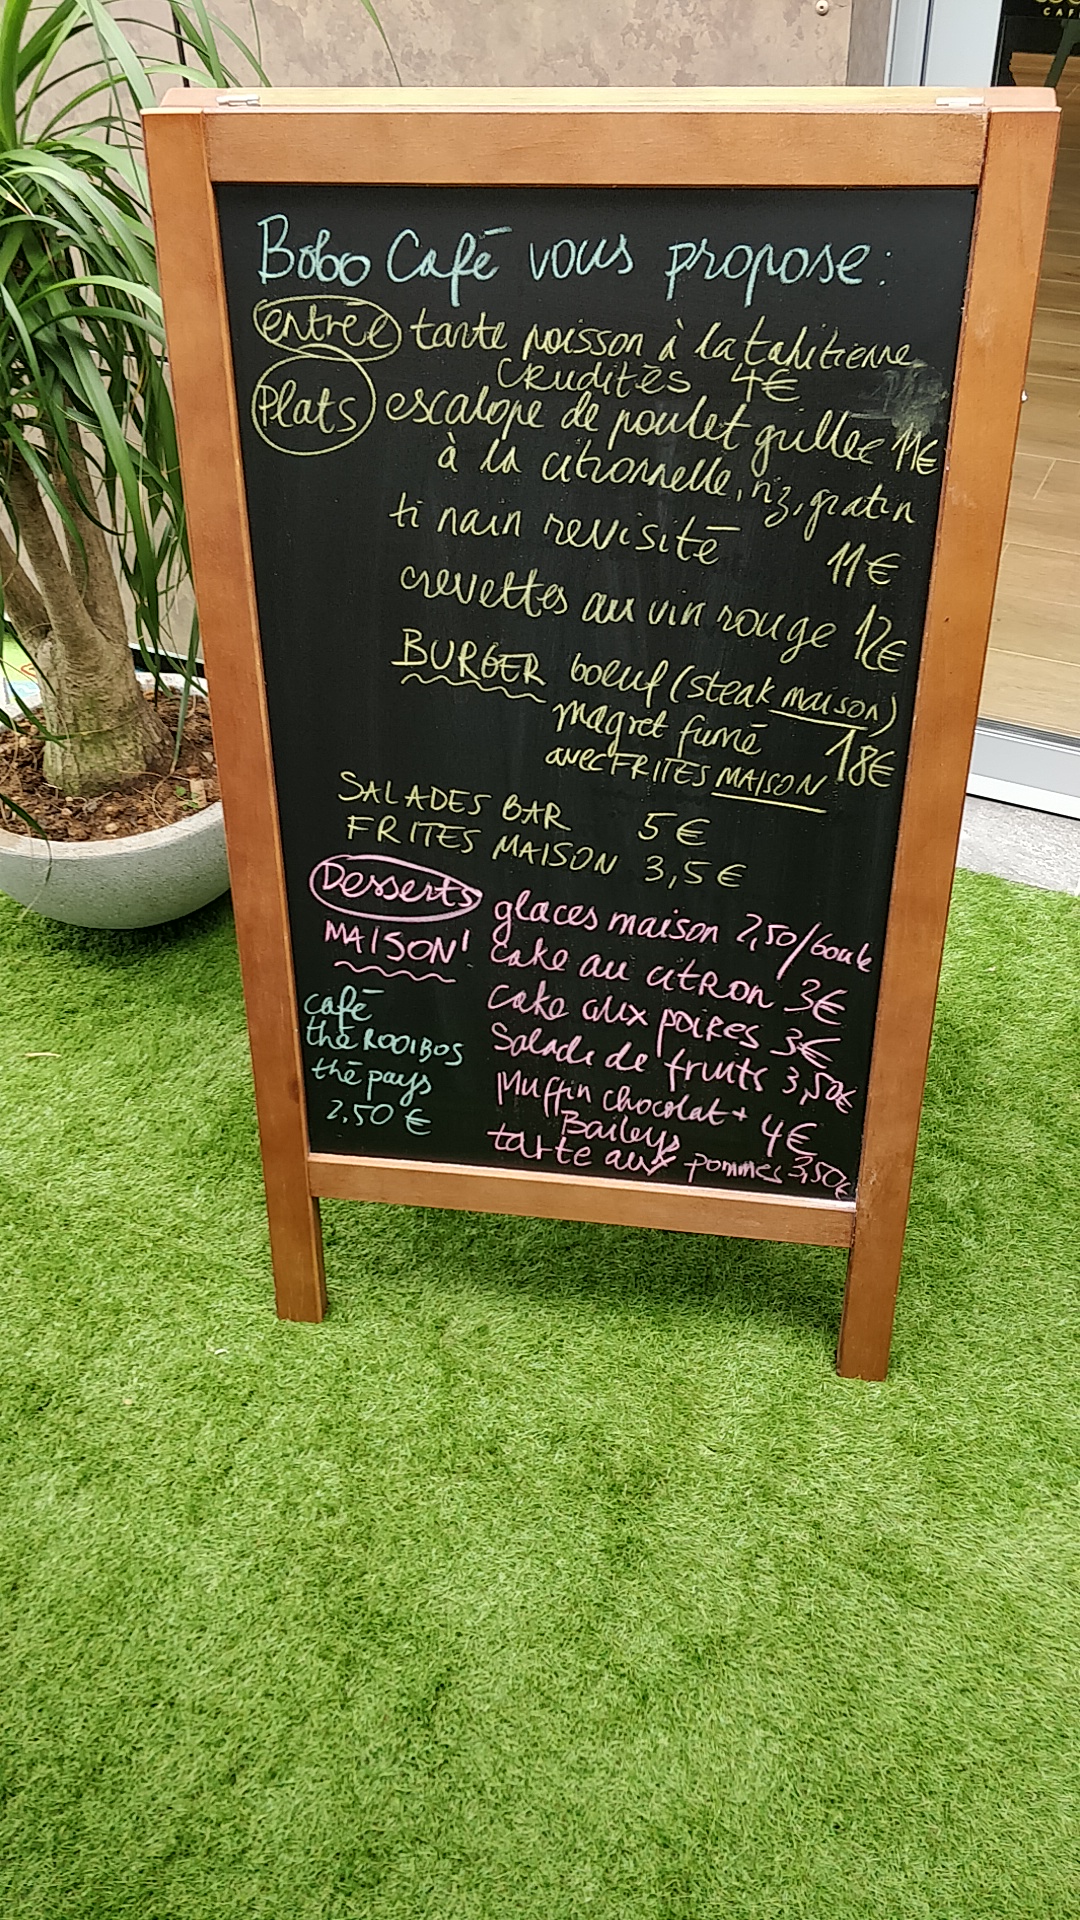 Bobo Café vous propose :
entrée tarte poisson à la tahitienne
CRUDITÉS 4€
Plats escalope de poulet grillée 11€
à la citronnelle, riz, gratin
ti nain revisité 11€
crevettes au vin rouge 12€
BURGER boeuf (steak maison)
magret fumé 18€
avec FRITES MAISON
SALADES BAR 5€
FRITES MAISON 3,5€
Desserts glaces maison 2,50/boule
MAISON! cake au citron 3€
cake aux poires 3€
Salade de fruits 3,50€
Muffin chocolat + 4€
Baileys
tarte aux pommes 3,50€
café
thé ROOIBOS
thé pays
2,50 €
CAF